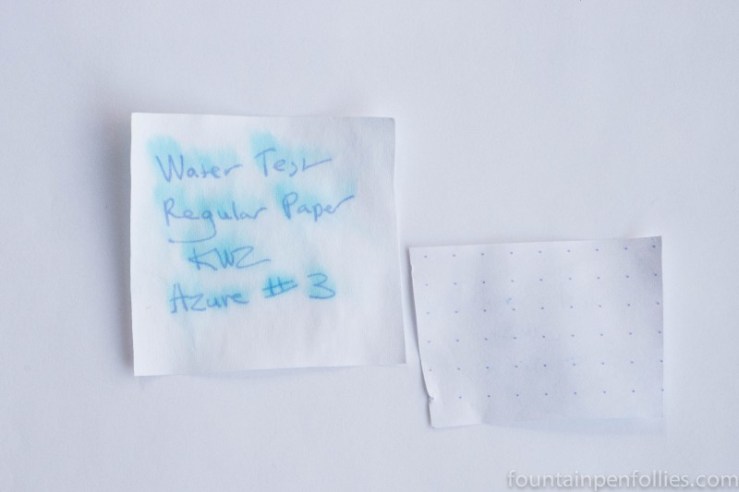 Water Test
Regular Paper
KWZ
Azure # 3
fountainpenfollies.com